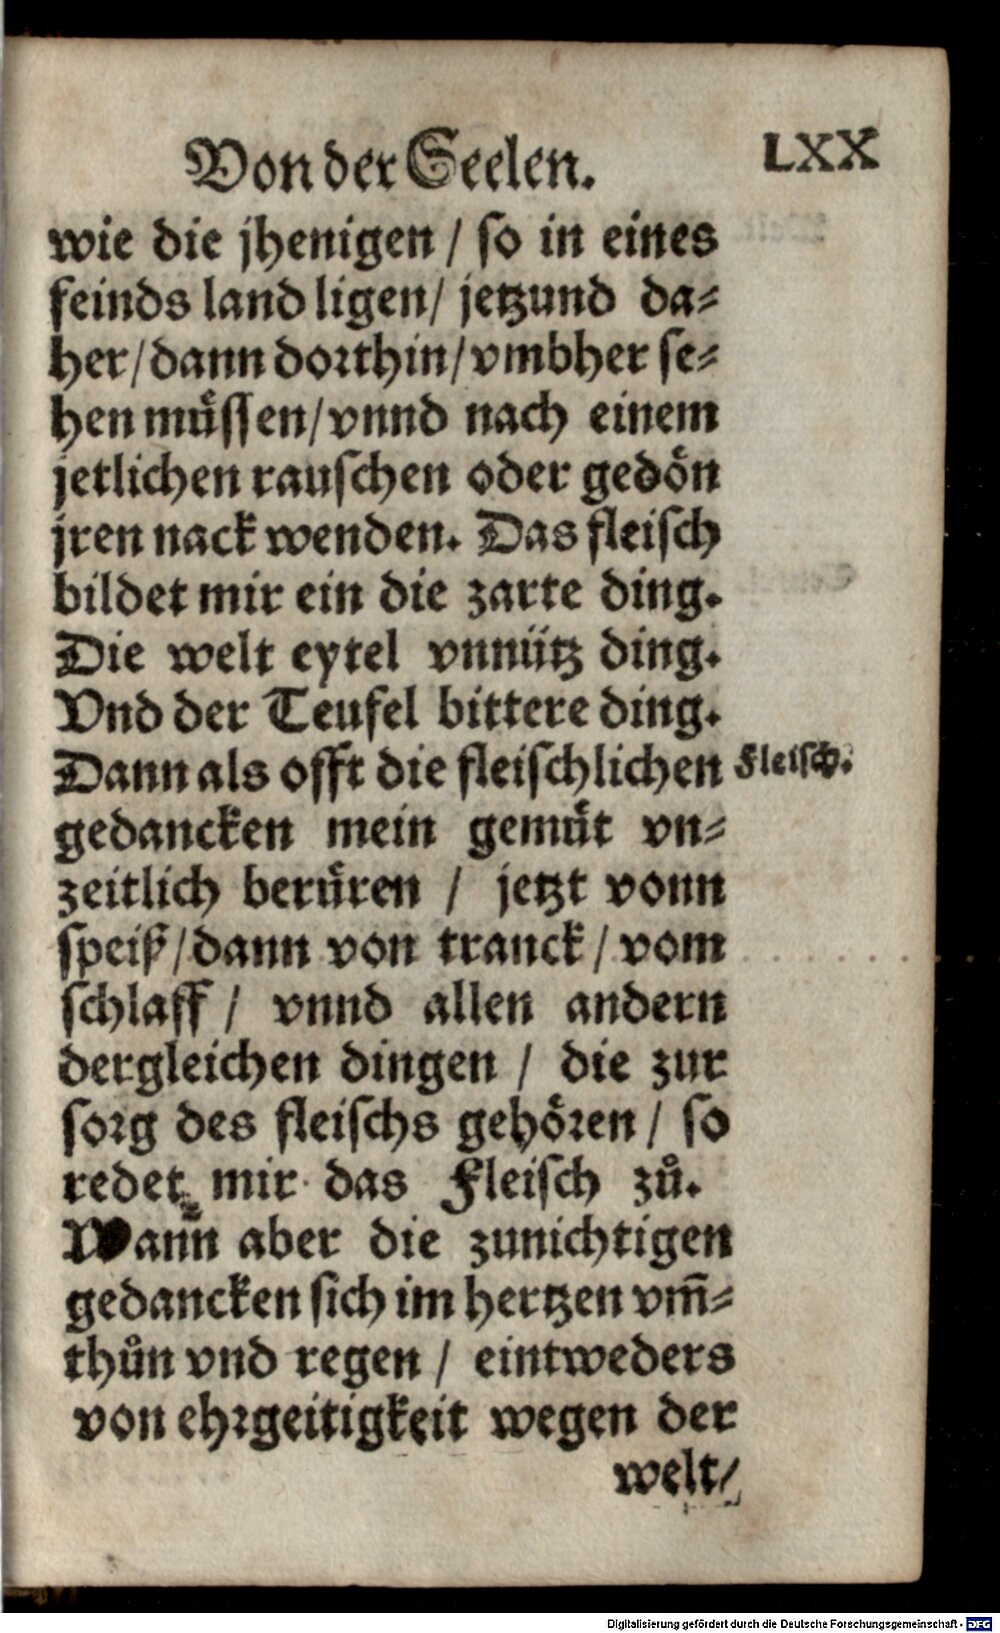 Von der Seelen. LXX
wie die jhenigen / so in eines
feinds land ligen / jetzund da⸗
her / dann dorthin / vmbher se⸗
hen muͤssen / vnnd nach einem
jetlichen rauschen oder gedoͤn
jren nack wenden. Das fleisch
bildet mir ein die zarte ding.
Die welt eytel vnnütz ding.
Vnd der Teufel bittere ding.
Dann als offt die fleischlichen
Fleisch.
gedancken mein gemuͤt vn⸗
zeitlich beruͤren / jetzt vonn
speiß / dann von tranck / vom
schlaff / vnnd allen andern
dergleichen dingen / die zur
sorg des fleischs gehoͤren / so
redet mir das Fleisch zuͦ.
Wann aber die zunichtigen
gedancken sich im hertzen vm̄⸗
thuͦn vnd regen / eintweders
von ehrgeitigkeit wegen der
welt /
Digitalisierung gefördert durch die Deutsche Forschungsgemeinschaft - DFG